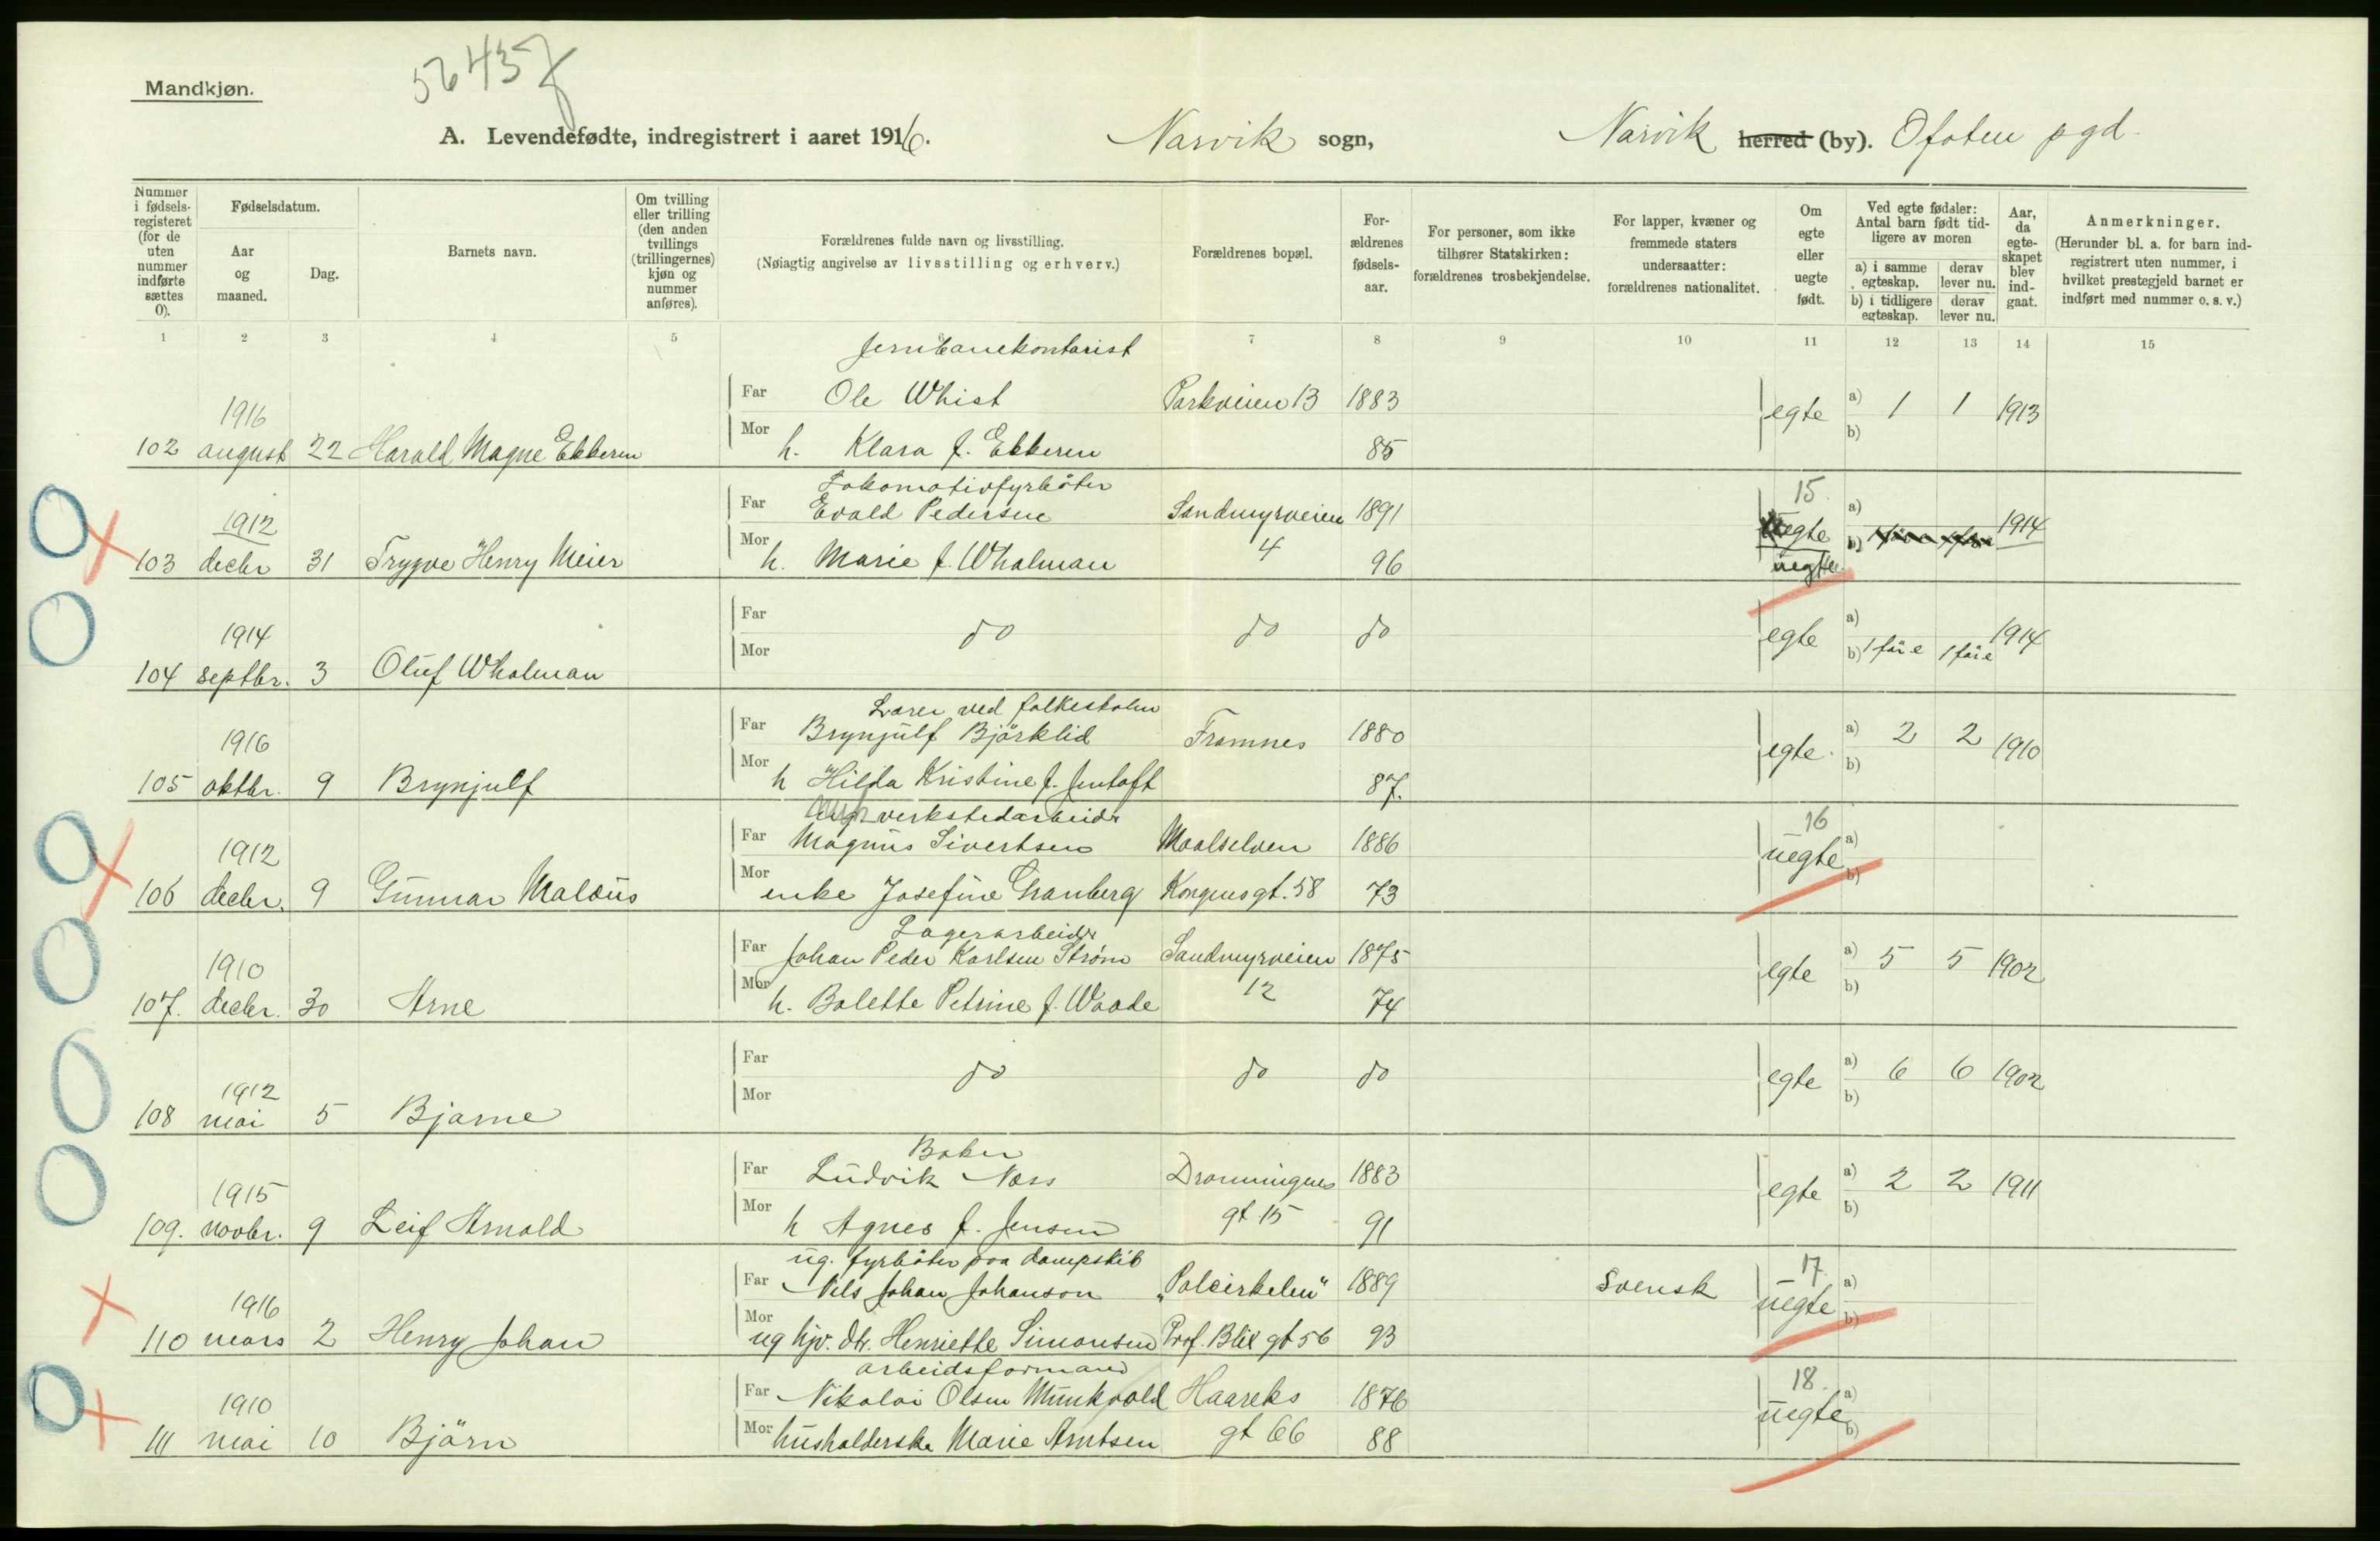 56437
Mandkjøn.
A. Levendefødte, indregistrert i aaret 1916. Narvik sogn, Narvik herred (by). Ofoten pgd.
Nummer i fødsels-registeret (for de uten nummer indførte sættes 0).
Fødselsdatum.
Aar og maaned.
Dag.
Barnets navn.
Om tvilling eller trilling (den anden tvillings (trillingernes) kjøn og nummer anføres).
Forældrenes fulde navn og livsstilling.
(Nøiagtig angivelse av livsstilling og erhverv.)
Forældrenes bopæl.
For-ældrenes fødsels-aar.
For personer, som ikke tilhører Statskirken: forældrenes trosbekjendelse.
For lapper, kvæner og fremmede staters undersaatter: forældrenes nationalitet.
Om egte eller uegte født.
Ved egte fødsler: Antal barn født tid-ligere av moren
a) i samme egteskap. derav lever nu.
b) i tidligere egteskap. derav lever nu.
Aar, da egte-skapet blev ind-gaat.
Anmerkninger.
(Herunder bl. a. for barn ind-registrert uten nummer, i hvilket prestegjeld barnet er indført med nummer o. s. v.)
1 2 3 4 5 7 8 9 10 11 12 13 14 15
Jernbanekontorist
Far Ole Whist Parkveien 13 1883
1916 egte a) 1 1 1913 b)
102 august 22 Harald Magne Ekkeren Mor h. Klara f. Ekkeren 85
Lokomotivfyrbøter
Far Evald Pedersen Sandmyrveien 1891 15 a)
1912 uegte b) 1914
103 decbr 31 Trygve Henry Meier Mor h. Marie f. Wholman 4 96 uegte
Far
1914 do do do egte a) b) 1 före 1 före 1914
104 septbr. 3 Oluf Wholman Mor
Lærer ved folkeskolen
Far Brynjulf Bjørklid Framnes 1880
1916 egte. a) 2 2 1910 b)
105 oktbr. 9 Brynjulf Mor h Hilda Kristine f. Jentoft 87.
verkstedarbeider
Far Magnus Sivertsen Maalselven 1886 16
1912 uegte a) b)
106 decbr. 9 Gunnar Malæus Mor enke Josefine Granberg Kongensgt. 58 73
Lagerarbeider
Far Johan Peder Karlsen Strøm Sandmyrveien 1875
1910 egte a) 5 5 1902 b)
107. decbr. 30 Arne Mor h. Bolette Petrine f. Waade 12 74
Far
1912 do do do egte a) 6 6 1902 b)
108 mai 5 Bjarne Mor
Baker
Far Ludvik Næss Dronningens 1883
1915 egte a) 2 2 1911 b)
109. novbr. 9 Leif Arnold Mor h Agnes f. Jensen gt 15 91
ug. fyrbøter paa dampskib
Far Nils Johan Johanson „Polcirkelen" 1889 Svensk 17.
1916 uegte a) b)
110 mars 2 Henry Johan Mor ug hjv. dtr. Henriette Simonsen Prof. Blix gt 56 93
arbeidsformand
Far Nikolai Olsen Munkvold Haareks 1876 18.
1910 uegte a) b)
111 mai 10 Bjørn Mor husholderske Marie Arntsen gt 66 88